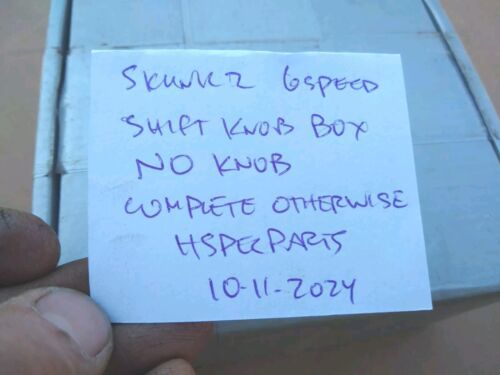 SKUNK2 6SPEED
SHIFT KNOB BOX
NO KNOB
COMPLETE OTHERWISE
HSPECPARTS
10-11-2024